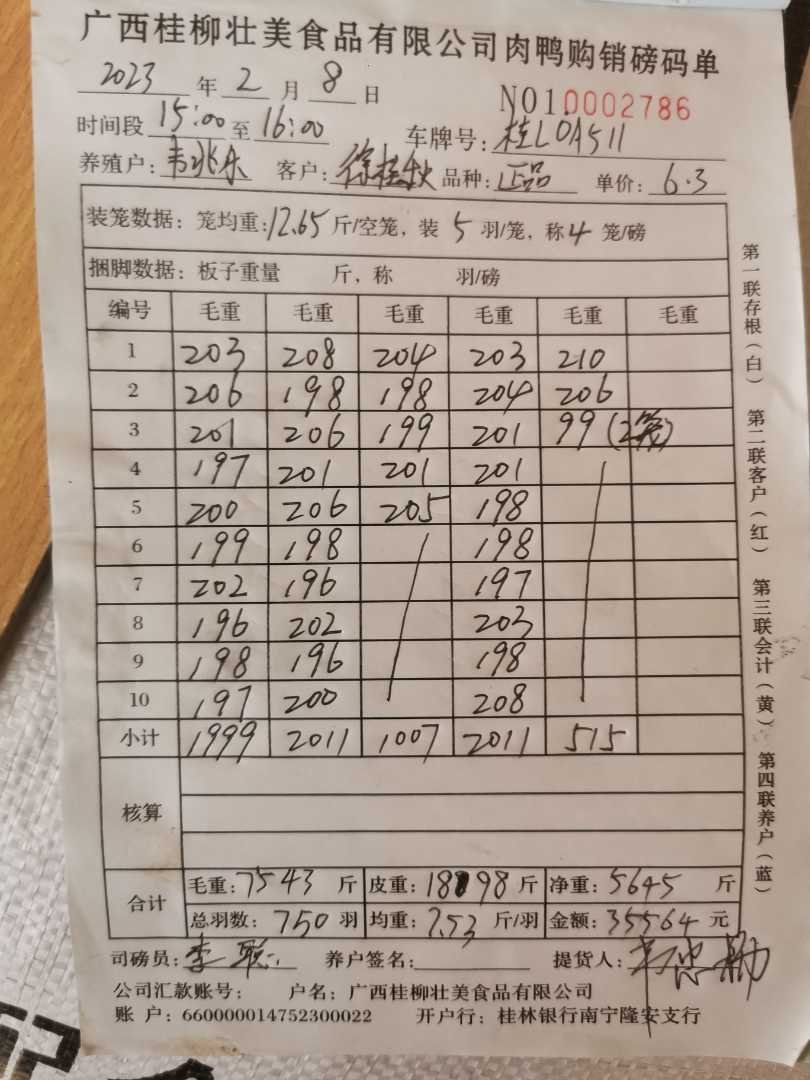 广西桂柳壮美食品有限公司肉鸭购销磅码单
2023 年 2 月 8 日 NO1.0002786
时间段 15:00 至 16:00 车牌号: 桂L0A511
养殖户: 韦兆乐 客户: 徐桂秋 品种: 正品 单价: 6.3
装笼数据: 笼均重: 12.65 斤/空笼, 装 5 羽/笼, 称 4 笼/磅
捆脚数据: 板子重量 斤, 称 羽/磅
编号 毛重 毛重 毛重 毛重 毛重 毛重
1 203 208 204 203 210
2 206 198 198 204 206
3 201 206 199 201 99 (2笼)
4 197 201 201 201
5 200 206 205 198
6 199 198 198
7 202 196 197
8 196 202 203
9 198 196 198
10 197 200 208
小计 1999 2011 1007 2011 515
核算
合计 毛重: 7543 斤 皮重: 1898 斤 净重: 5645 斤
总羽数: 750 羽 均重: 7.53 斤/羽 金额: 35564 元
司磅员: 李 养户签名: 提货人:
公司汇款账号: 户名: 广西桂柳壮美食品有限公司
账 户: 660000014752300022 开户行: 桂林银行南宁隆安支行
第一联存根(白) 第二联客户(红) 第三联会计(黄) 第四联养户(蓝)